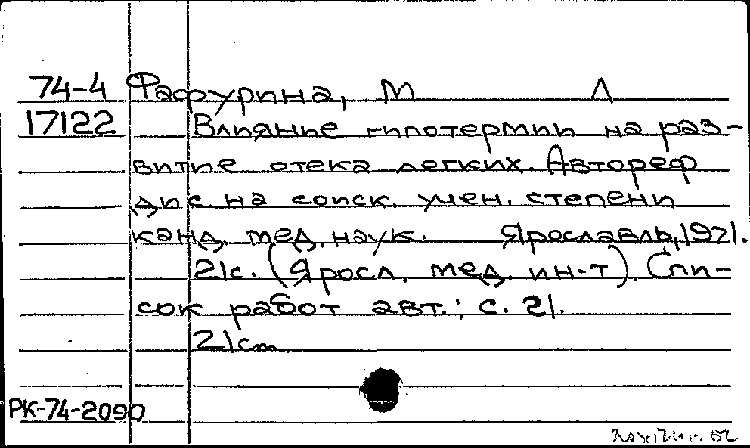 74-4 Фафурина, М Л
17122 Влияние гипотермии на раз-
витие отека легких. Автореф
дис на соиск. учен. степени
канд. мед. наук. Ярославль, 1971.
21с. (Яросл. мед. ин-т). Спи-
сок работ авт.: с. 21.
21cm
РК-74-2090